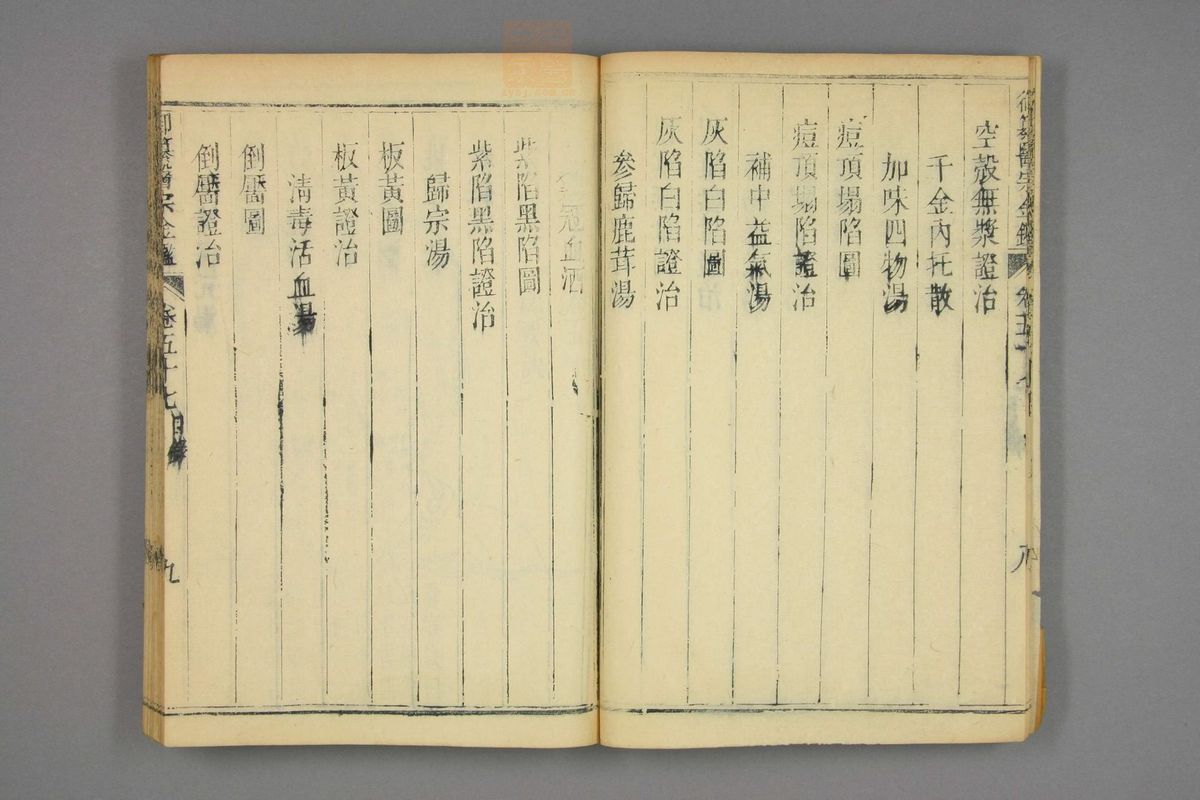 御纂醫宗金鑑
空殼無漿證治
千金內托散
加味四物湯
痘頂塌陷圖
痘頂塌陷證治
補中益氣湯
灰陷白陷圖
灰陷白陷證治
參歸鹿茸湯
八
血酒
紫陷黑陷圖
紫陷黑陷證治
歸宗湯
板黃圖
板黃證治
清毒活血湯
倒靨圖
倒靨證治
宗金鑑 卷五十七 目錄 九